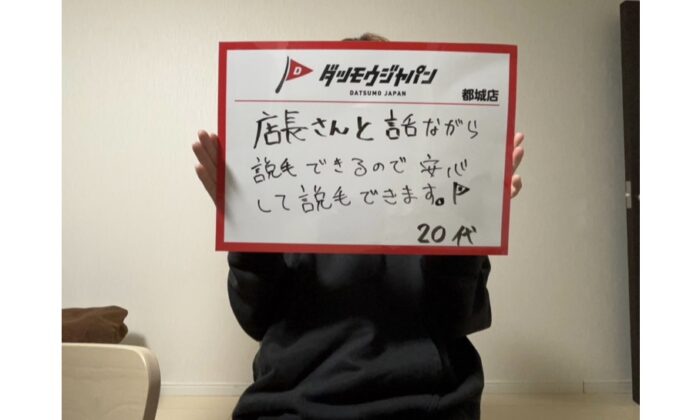 ダツモウジャパン
DATSUMO JAPAN
都城店
店長さんと話ながら
説毛できるので安心
して説毛できます。
20代